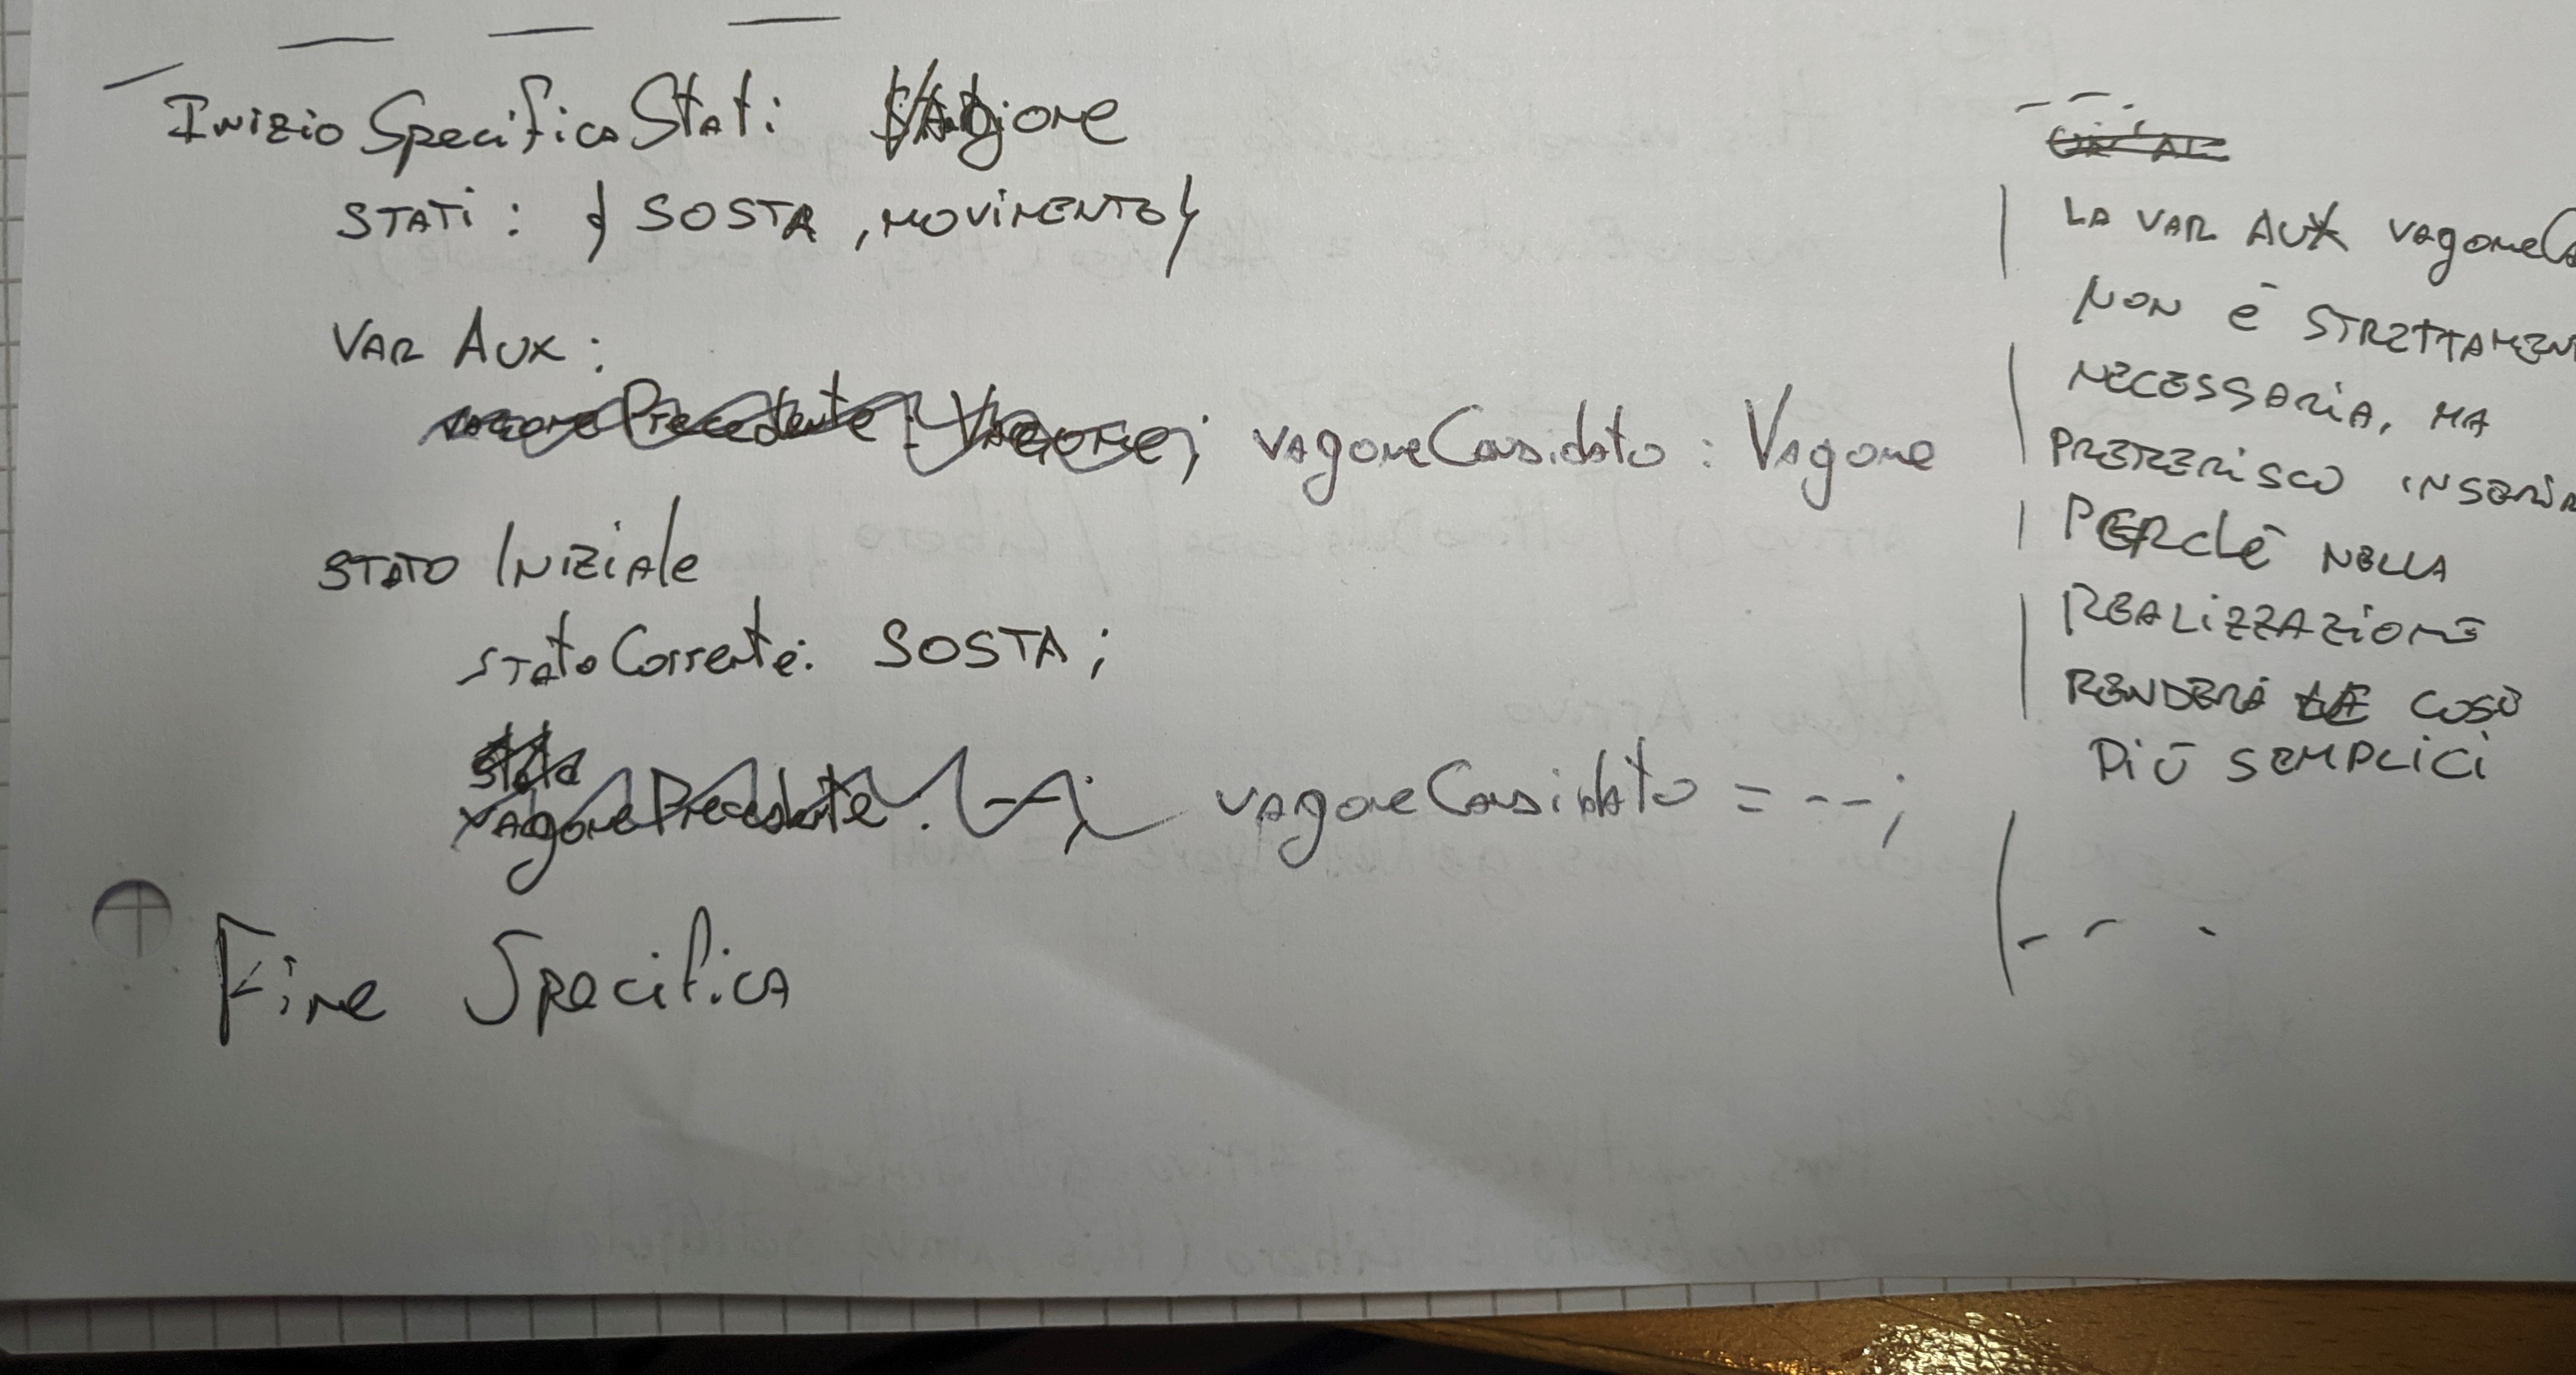 Inizio Specifica Stati Vagone
STATI : { SOSTA , MOVIMENTO }
VAR AUX :
vagonePrecedente : Vagone; vagoneCandidato : Vagone
STATO Iniziale
statoCorrente: SOSTA ;
stato
vagonePrecedente : --; vagoneCandidato = -- ;
Fine Specifica
LA VAR AUX vagoneCa
NON È STRETTAMEN
NECESSARIA, MA
PREFERISCO INSERIR
PERCHÈ NELLA
REALIZZAZIONE
RENDERÀ LE COSE
PIÙ SEMPLICI